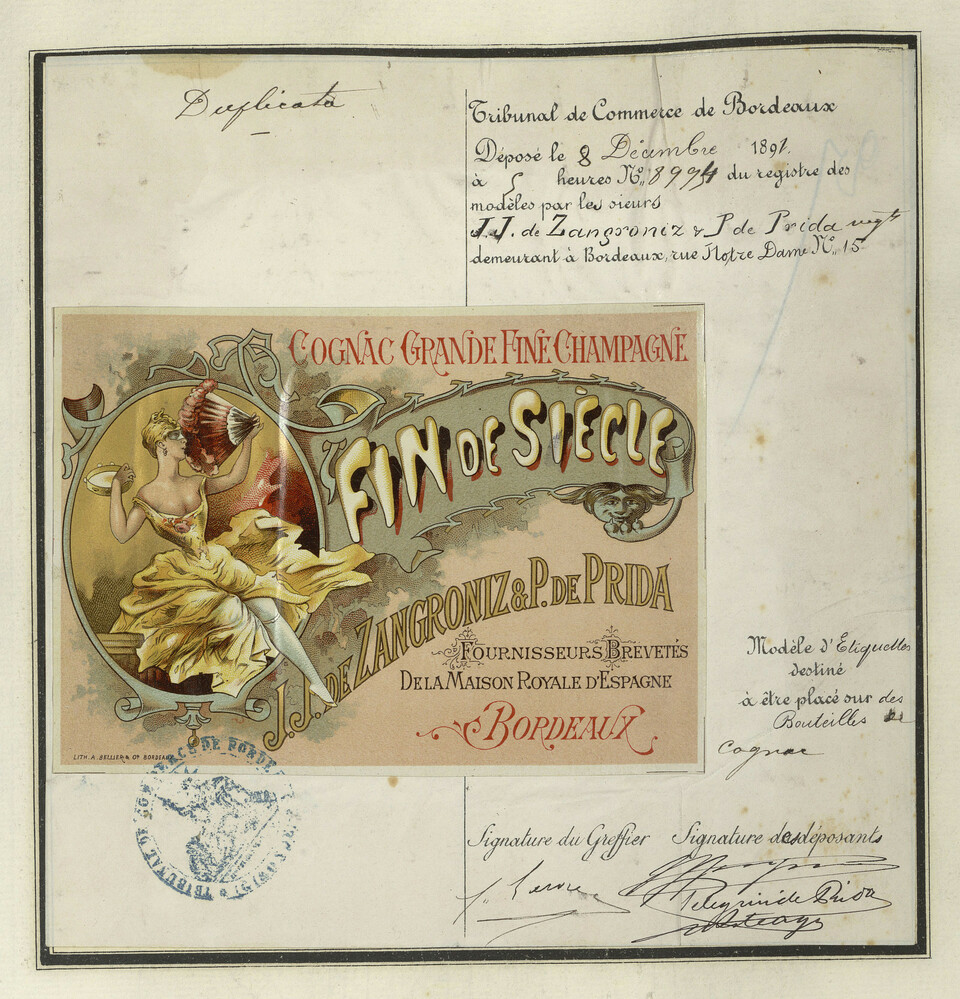 Duplicata
Tribunal de Commerce de Bordeaux
Déposé le 8 Décembre 1891.
à 5 heures No. 8994 du registre des
modèles par les sieurs
J.J. de Zangroniz & P. de Prida negts
demeurant à Bordeaux, rue Notre Dame No. 15
COGNAC GRANDE FINE CHAMPAGNE
FIN DE SIÈCLE
J.J. DE ZANGRONIZ & P. DE PRIDA
FOURNISSEURS BREVETÉS
DE LA MAISON ROYALE D'ESPAGNE
BORDEAUX
LITH. A. BELLIER & Cie BORDEAUX
Modèle d'Etiquettes
destiné
à être placé sur des
Bouteilles de
Cognac
TRIBUNAL DE COMMERCE DE BORDEAUX
Signature du Greffier Signature des déposants
Pelegrin de Prida